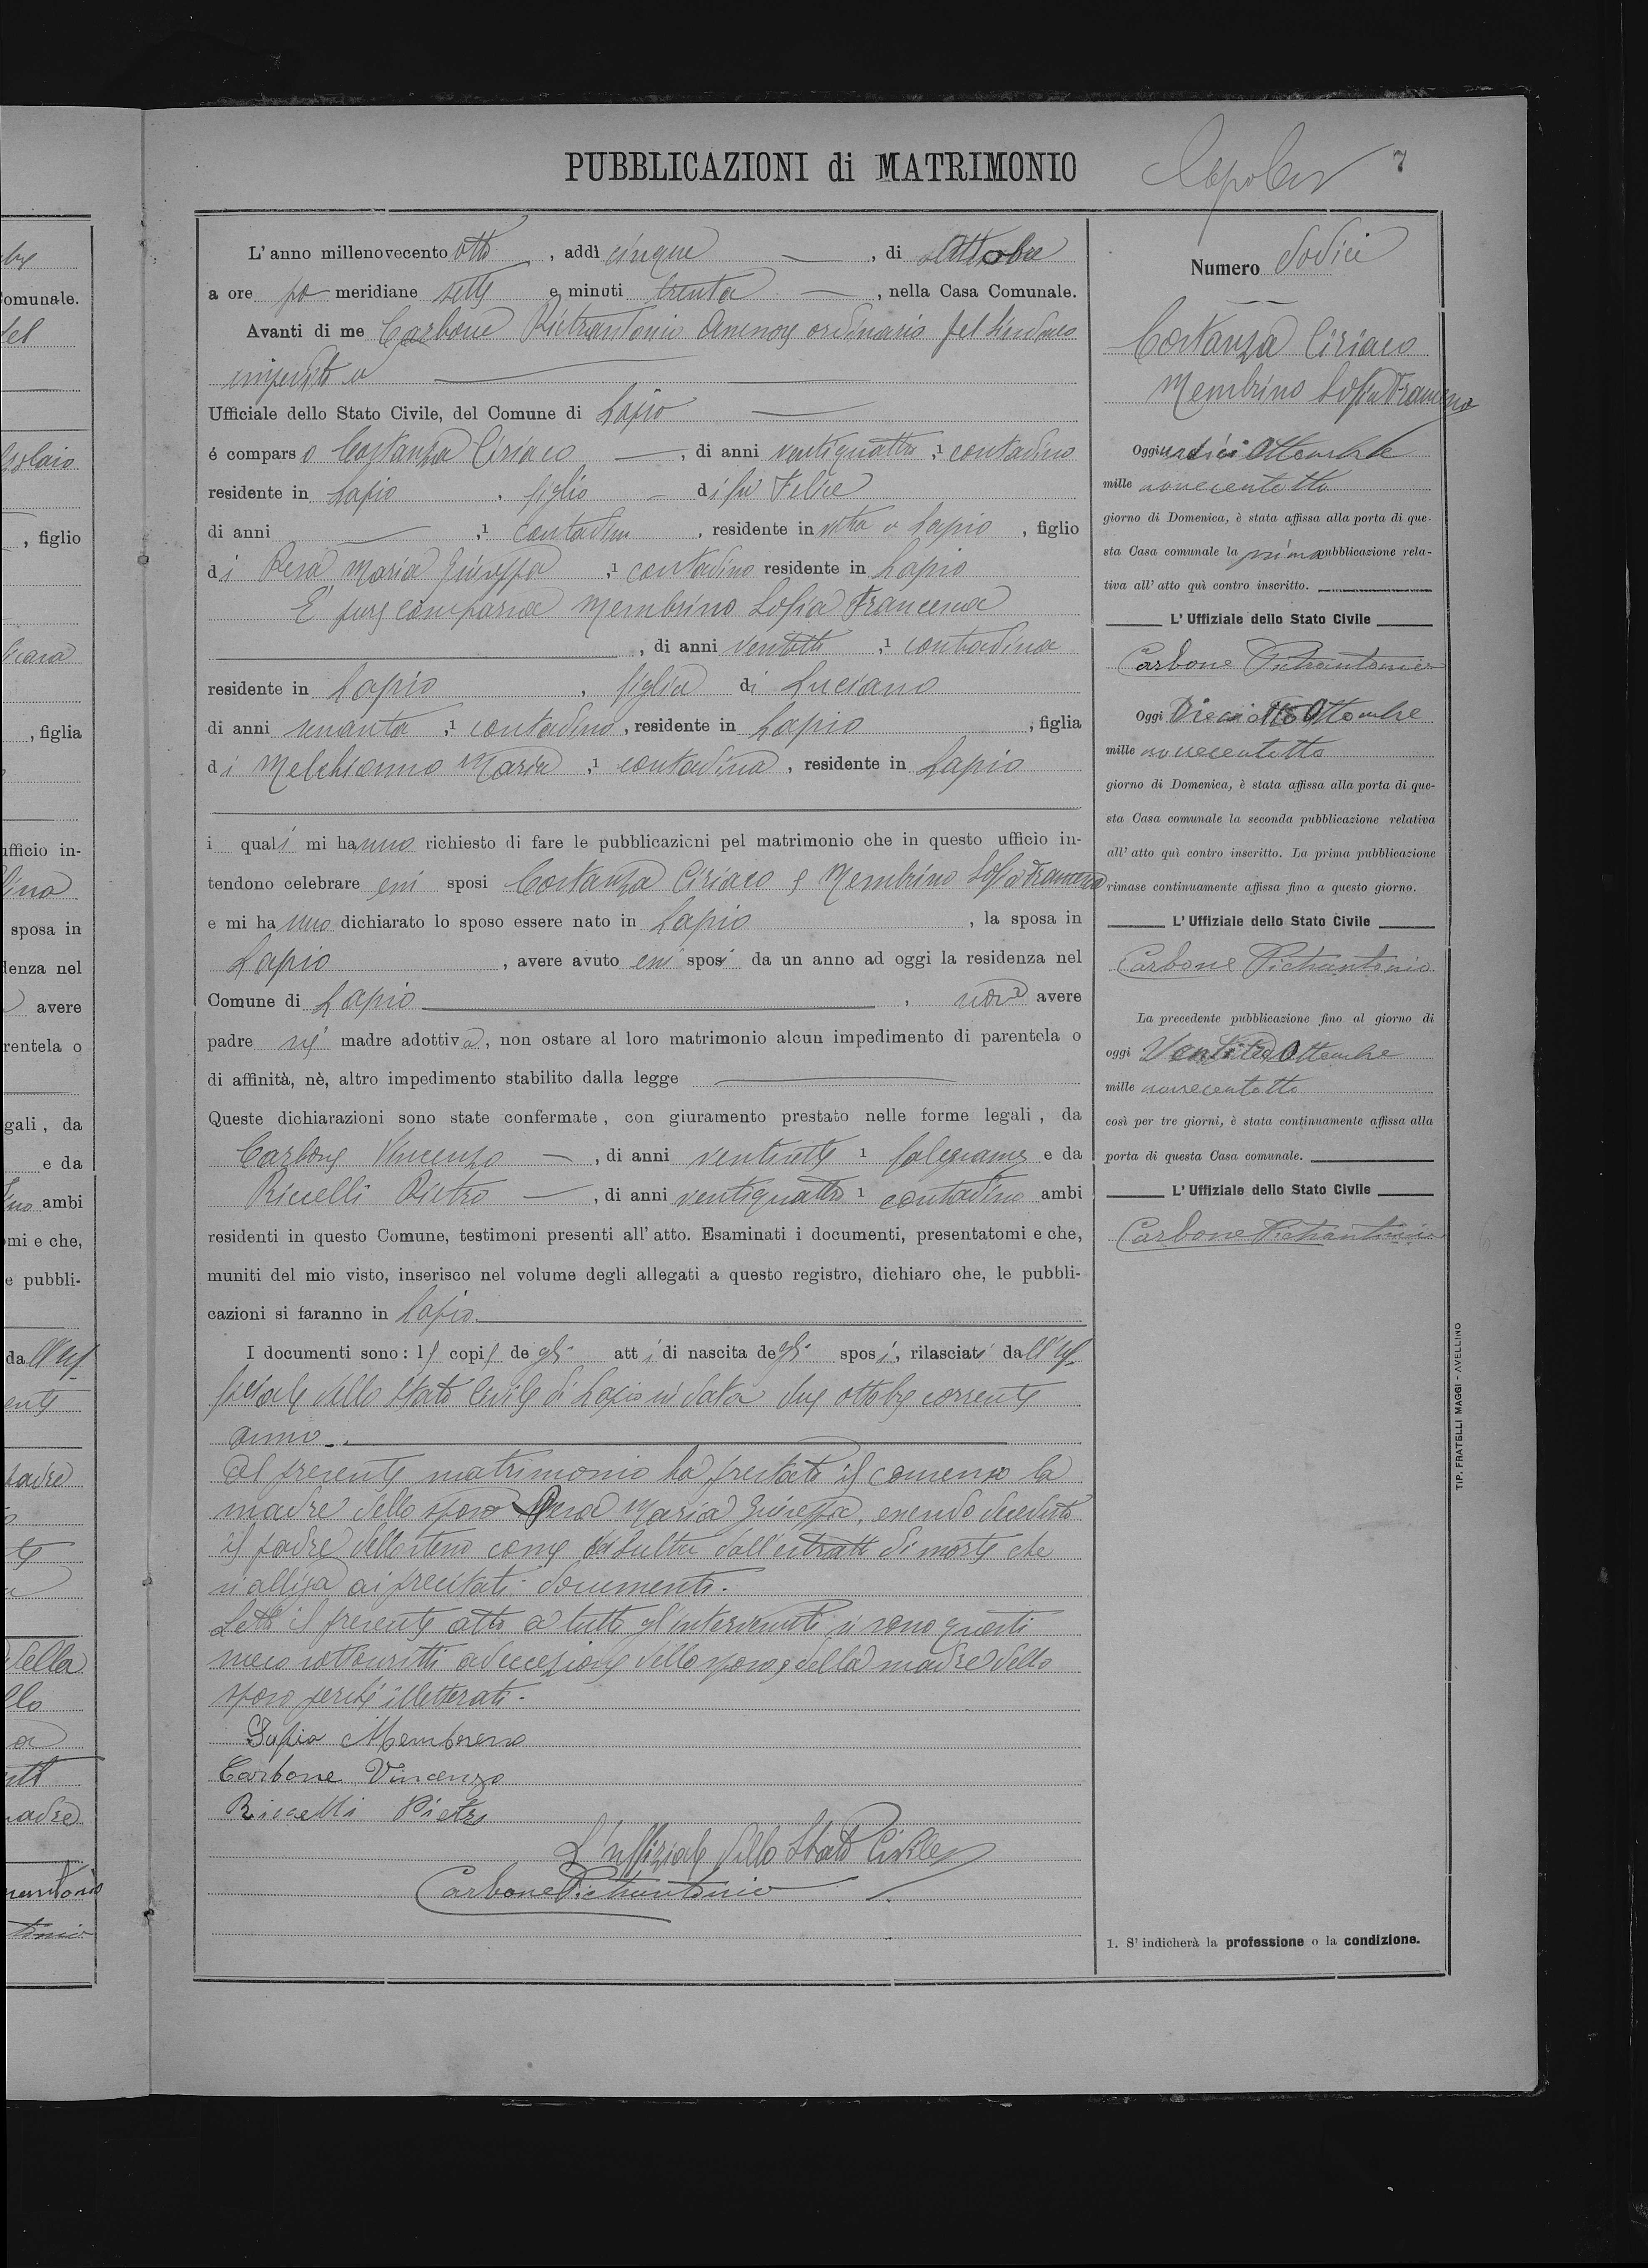 PUBBLICAZIONI di MATRIMONIO
7
L'anno millenovecento otto, addì cinque, di Ottobre
a ore po meridiane sette e minuti trenta, nella Casa Comunale.
Avanti di me Carbone Pietrantonio Assessore ordinario pel Sindaco
impedito
Ufficiale dello Stato Civile, del Comune di Lapio
é comparso Costanza Ciriaco, di anni ventiquattro, 1 contadino
residente in Lapio, figlio di fu Felice
di anni , 1 contadino, residente in vita a Lapio, figlio
di Resa Maria Giuseppa, 1 contadina residente in Lapio
E' pure comparsa Membrino Sofia Francesca
, di anni ventotto, 1 contadina
residente in Lapio, figlia di Luciano
di anni sessanta, 1 contadino, residente in Lapio, figlia
di Melchionno Maria, 1 contadina, residente in Lapio
i quali mi hanno richiesto di fare le pubblicazioni pel matrimonio che in questo ufficio in-
tendono celebrare essi sposi Costanza Ciriaco e Membrino Sofia Francesca
e mi hanno dichiarato lo sposo essere nato in Lapio, la sposa in
Lapio, avere avuto essi sposi da un anno ad oggi la residenza nel
Comune di Lapio, non avere
padre né madre adottiva, non ostare al loro matrimonio alcun impedimento di parentela o
di affinità, nè, altro impedimento stabilito dalla legge
Queste dichiarazioni sono state confermate, con giuramento prestato nelle forme legali, da
Carbone Vincenzo, di anni ventisette 1 falegname e da
Riccelli Pietro, di anni ventiquattro 1 contadino ambi
residenti in questo Comune, testimoni presenti all'atto. Esaminati i documenti, presentatomi e che,
muniti del mio visto, inserisco nel volume degli allegati a questo registro, dichiaro che, le pubbli-
cazioni si faranno in Lapio.
I documenti sono: le copie degli atti di nascita degli sposi, rilasciati dall'Uf-
ficiale dello Stato Civile di Lapio in data due ottobre corrente
anno.
Al presente matrimonio ha prestato il consenso la
madre dello sposo Resa Maria Giuseppa, essendo deceduto
il padre dello stesso come risulta dall'estratto di morte che
si alliga ai precitati documenti.
Letto il presente atto a tutti gl'intervenuti si sono questi
meco sottoscritti ad eccezione dello sposo e della madre dello
sposo perché illetterati.
Sofia Membreno
Carbone Vincenzo
Riccelli Pietro
L'uffiziale dello Stato Civile
Carbone Pietrantonio
Numero dodici
Costanza Ciriaco
Membrino Sofia Francesca
Oggi undici Ottombre
mille novecentotto
giorno di Domenica, è stata affissa alla porta di que-
sta Casa comunale la prima pubblicazione rela-
tiva all'atto quì contro inscritto.
L'Uffiziale dello Stato Civile
Carbone Pietrantonio
Oggi Dieciotto Ottombre
mille novecentotto
giorno di Domenica, è stata affissa alla porta di que-
sta Casa comunale la seconda pubblicazione relativa
all'atto quì contro inscritto. La prima pubblicazione
rimase continuamente affissa fino a questo giorno.
L'Uffiziale dello Stato Civile
Carbone Pietrantonio
La precedente pubblicazione fino al giorno di
oggi Ventitre Ottombre
mille novecentotto
così per tre giorni, è stata continuamente affissa alla
porta di questa Casa comunale.
L'Uffiziale dello Stato Civile
Carbone Pietrantonio
1. S'indicherà la professione o la condizione.
TIP. FRATELLI MAGGI - AVELLINO